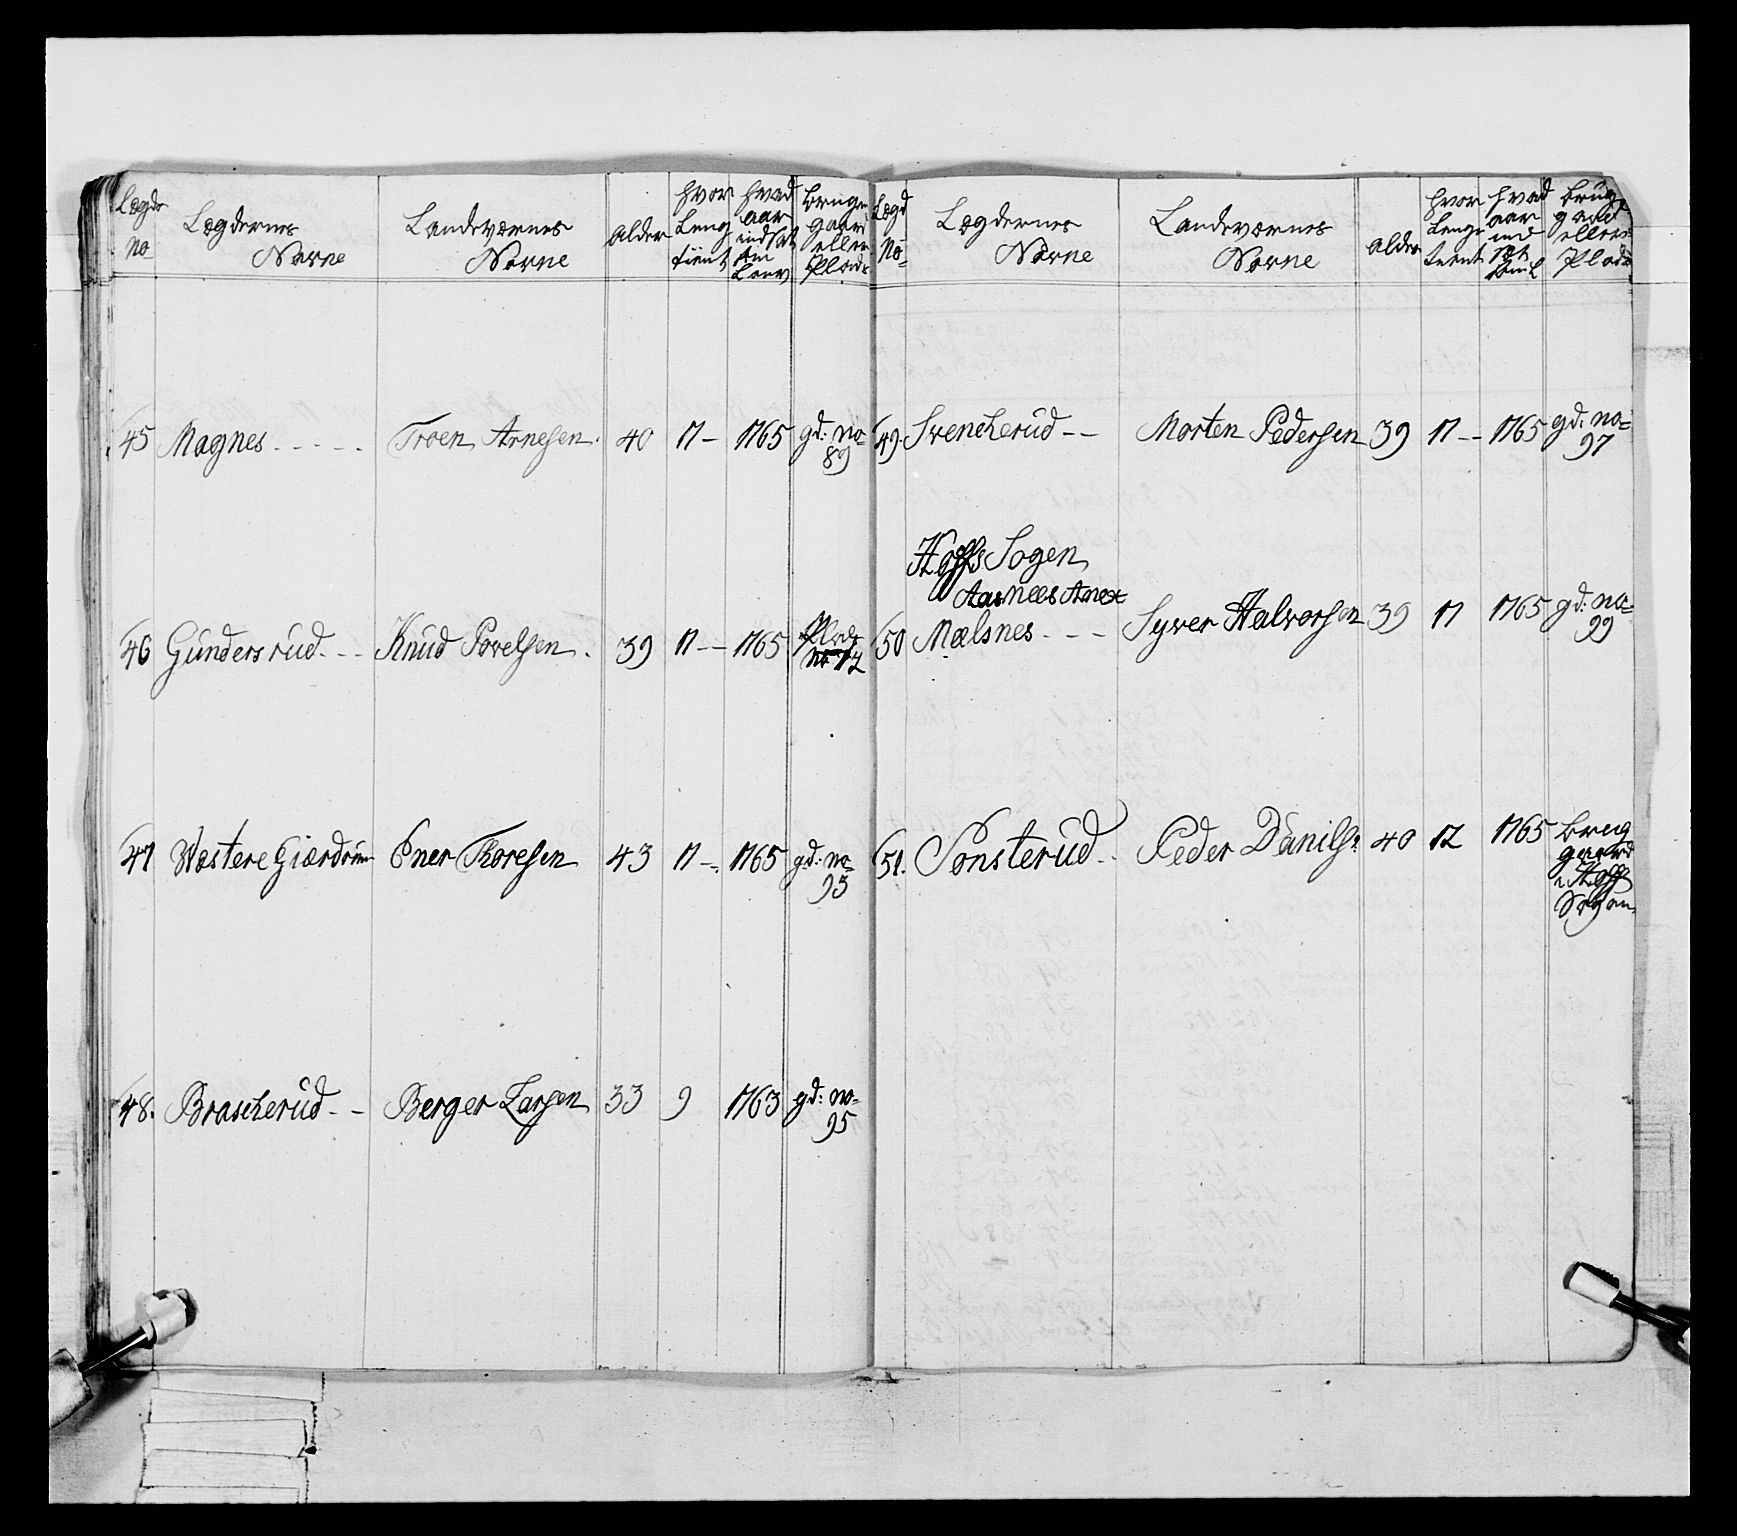 Lægds No
Lægdernes Navne
Landeværnes Navne
alder
hvor Leng tient
hvad aar indsat
bruger gaar eller Plads
45 Magnes - - - - - Troen Arnesen 40 17 - 1765 gd: no= 89
46 Gundersrud - - - Knud Povelsen . 39 17 - - 1765 Plads no
47 Westere Giærdrum Ener Thoresen 43 17 - . 1765 gd: no= 95
48. Brascherud - - Berger Larsen 33 9 1763 gd: no= 95
Lægd No=
Lægdernes Navne
Landeværnes Navne
alder
hvor Lenge tient
hvad aar ind sat
brug gaard eller Plads
49. Svencherud - - Morten Pedersen 39 17 - - 1765 gd: no= 97
Hoffs Sogen
Aasnees Anex
50 Mælsnes - - - Syver Halvorsen 39 17 1765 gd: no= 99
51. Sønsterud - . Peder Danils: 40 12 1765 brug gaard i Hoff Sogen